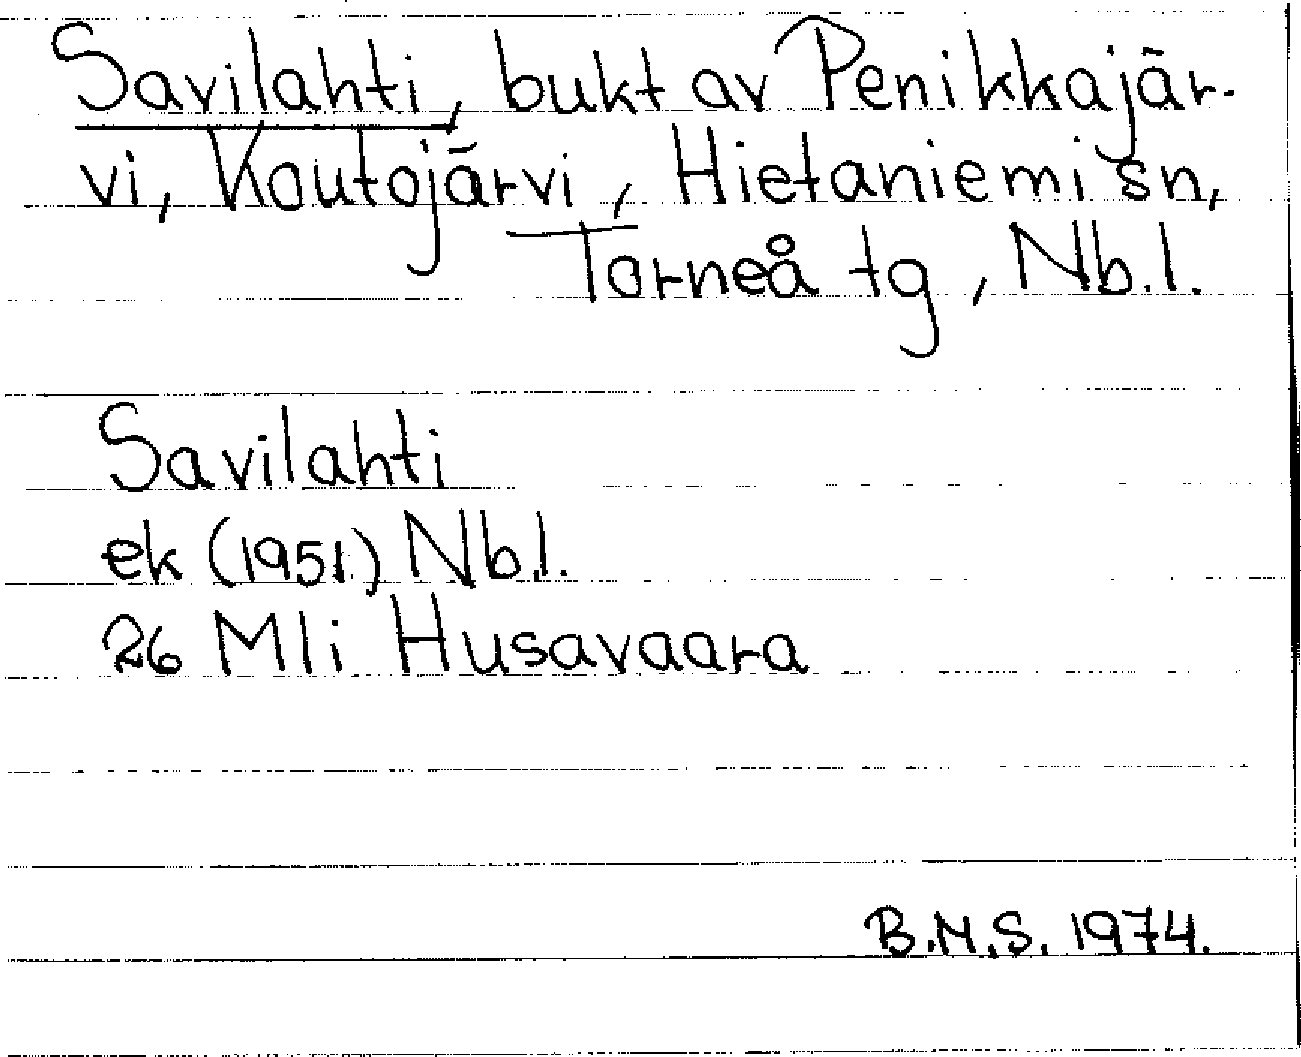 Savilahti, bukt av Penikkajär-
vi, Koutojärvi, Hietaniemi sn,
Torneå tg, Nb.l.
Savilahti
ek (1951) Nb.l.
26 Mli Husavaara
B.M.S. 1974.